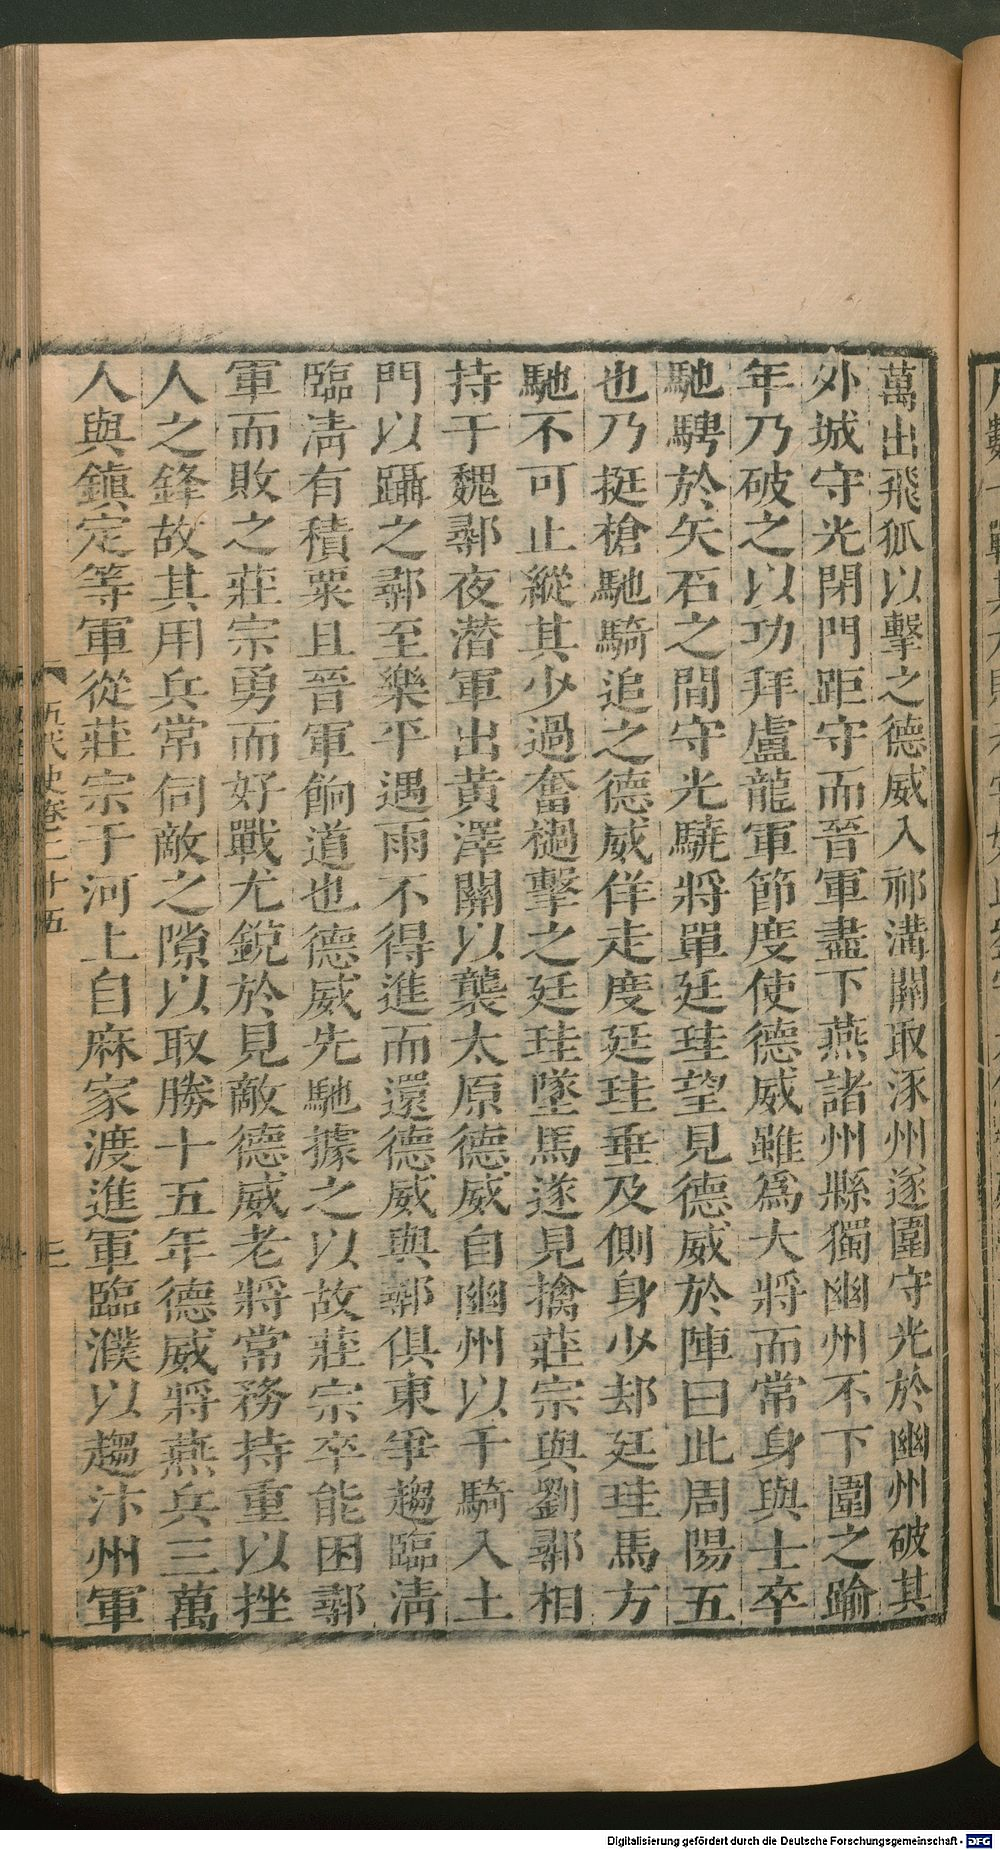 萬出飛狐以擊之德威入祁溝關取涿州遂圍守光於幽州破其
外城守光閉門距守而晉軍盡下燕諸州縣獨幽州不下圍之踰
年乃破之以功拜盧龍軍節度使德威雖爲大將而常身與士卒
馳騁於矢石之間守光驍將單廷珪望見德威於陣曰此周陽五
也乃挺槍馳騎追之德威佯走度廷珪垂及側身少却廷珪馬方
馳不可止縱其少過奮檛擊之廷珪墜馬遂見擒莊宗與劉鄩相
持于魏鄩夜潛軍出黃澤關以襲太原德威自幽州以千騎入土
門以躡之鄩至樂平遇雨不得進而還德威與鄩俱東爭趨臨淸
臨淸有積粟且晉軍餉道也德威先馳據之以故莊宗卒能困鄩
軍而敗之莊宗勇而好戰尤銳於見敵德威老將常務持重以挫
人之鋒故其用兵常伺敵之隙以取勝十五年德威將燕兵三萬
人與鎭定等軍從莊宗于河上自麻家渡進軍臨濮以趨汴州軍
五代史卷二十五
三
Digitalisierung gefördert durch die Deutsche Forschungsgemeinschaft - DFG